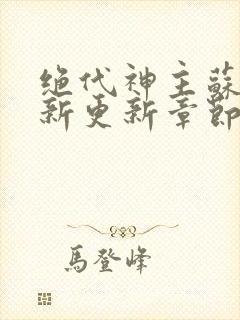 绝代神主蘇
新更新章節
馬登峰